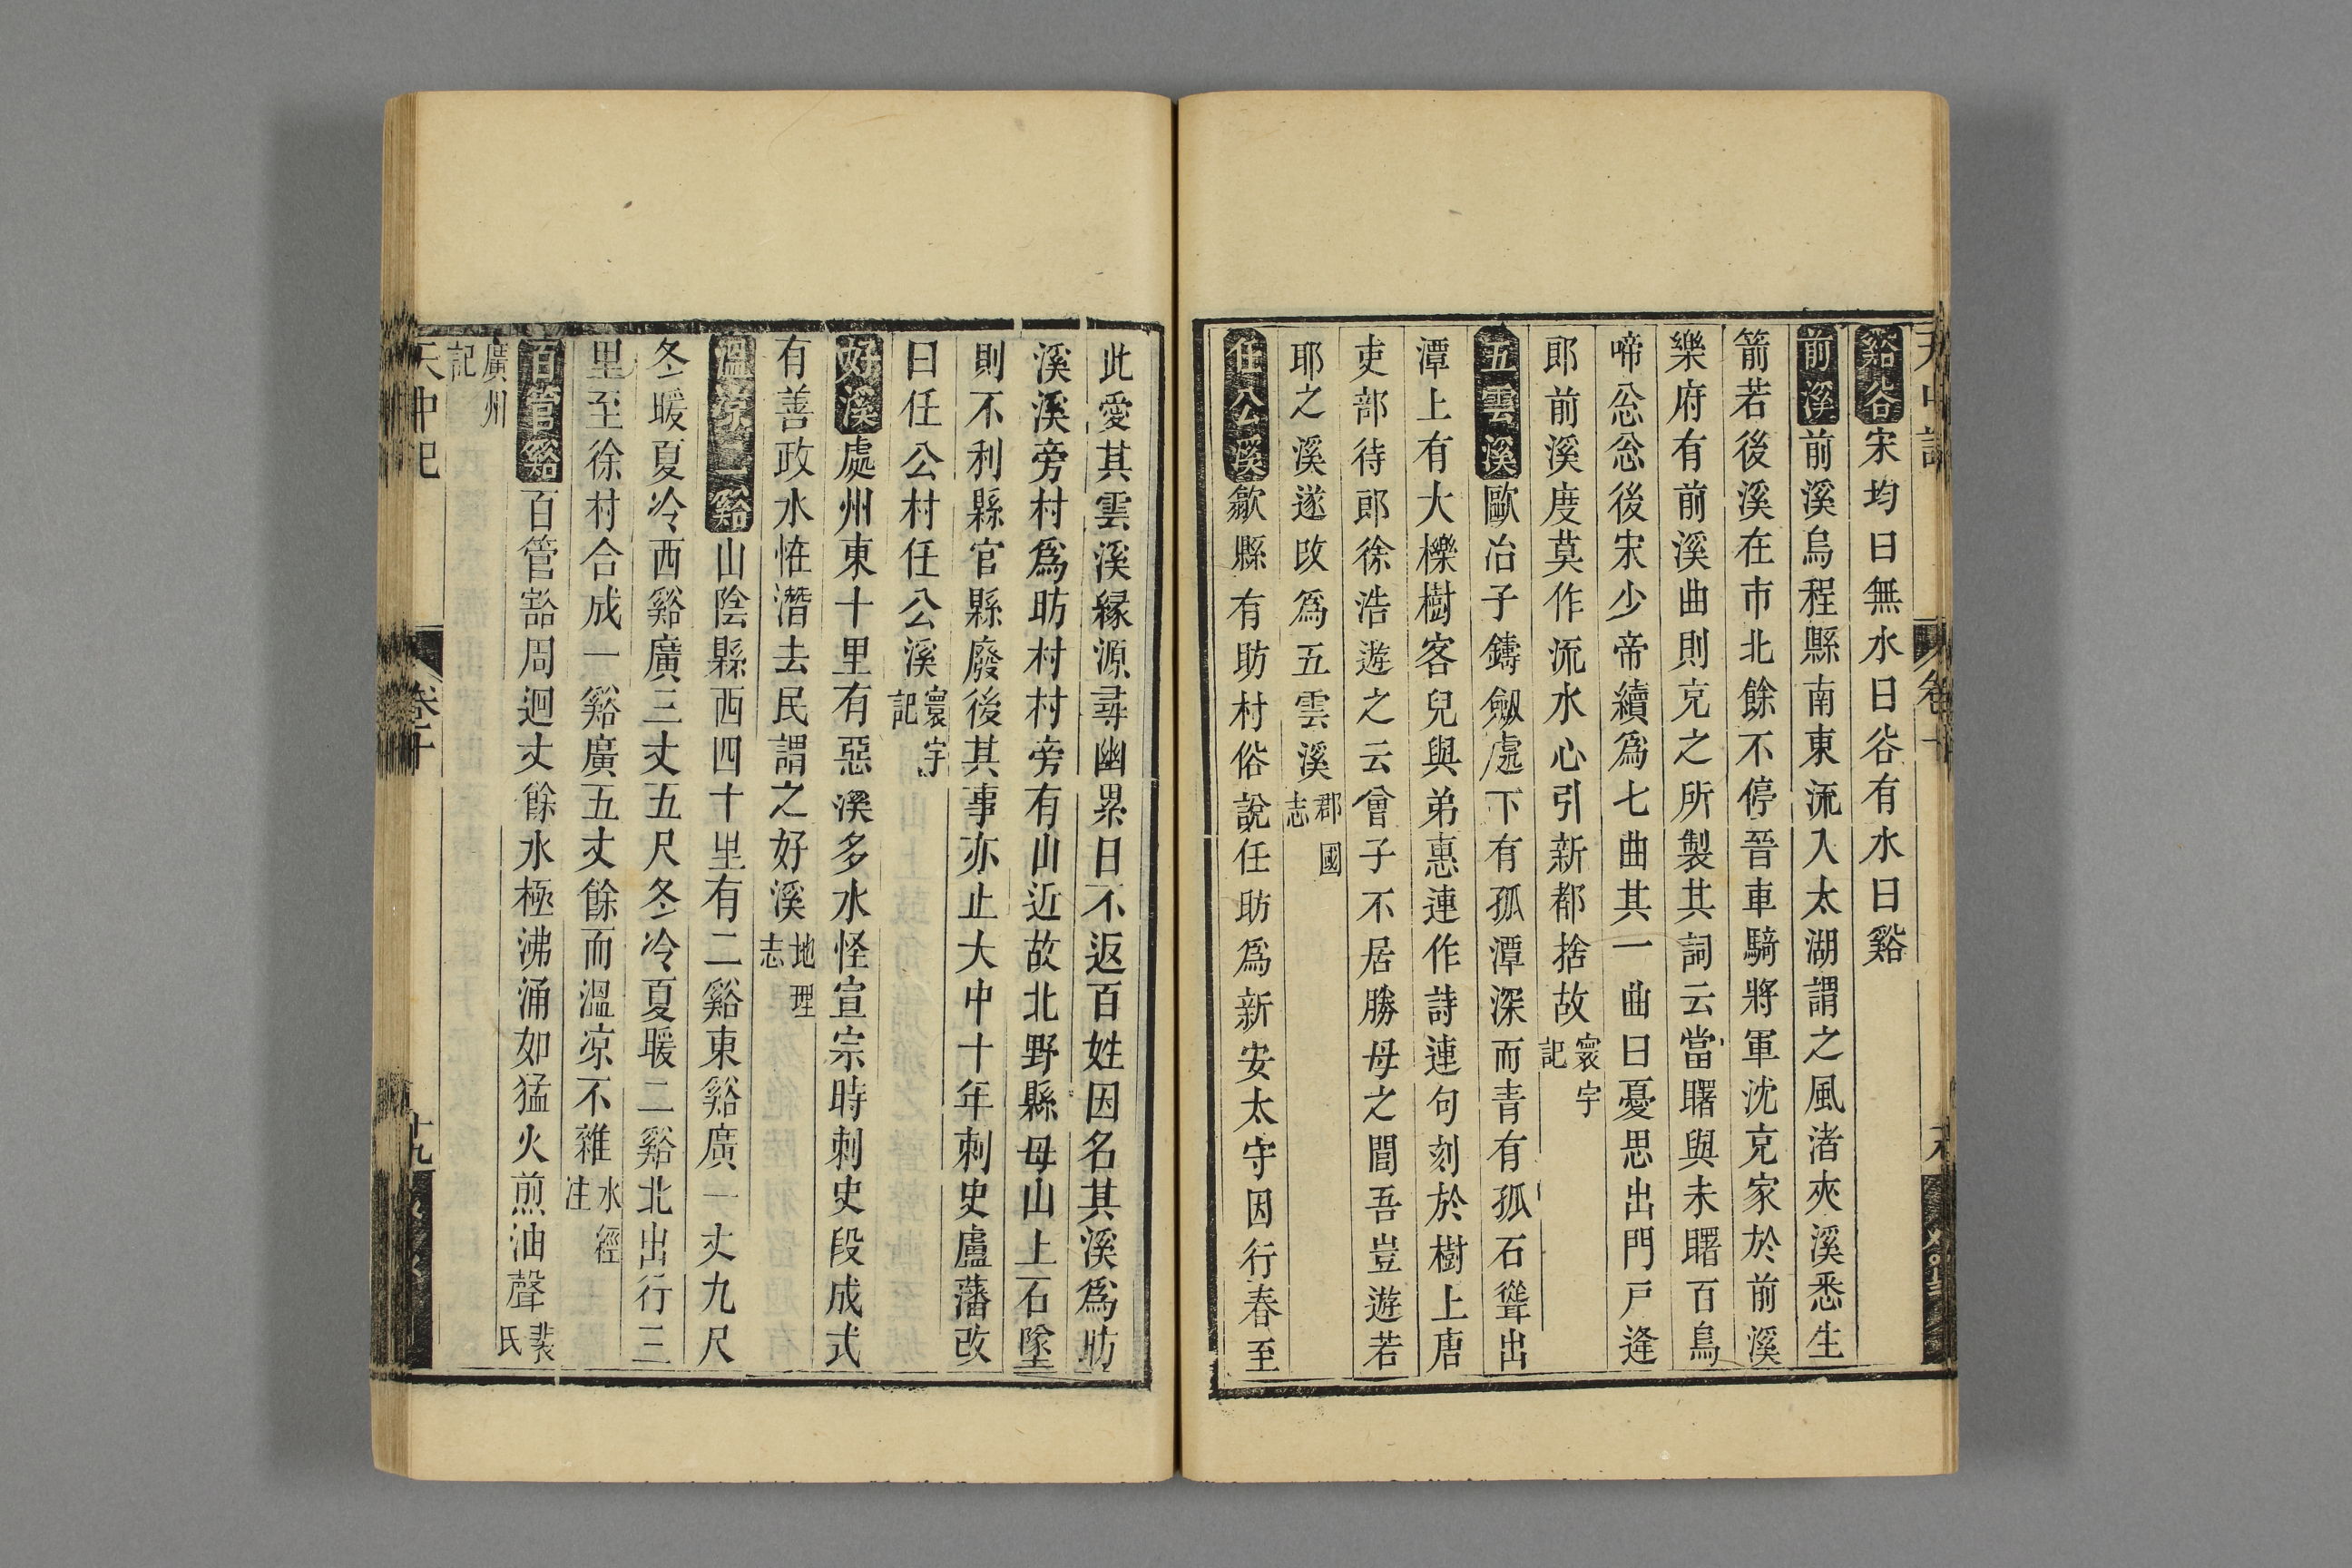 天中記 卷十
谿谷宋均曰無水曰谷有水曰谿
前溪前溪烏程縣南東流入太湖謂之風渚夾溪悉生
箭若後溪在市北餘不停晉車騎將軍沈克家於前溪
樂府有前溪曲則克之所製其詞云當曙與未曙百鳥
啼忿忿後宋少帝續爲七曲其一曲曰憂思出門戸逢
郎前溪度莫作流水心引新都捨故寰宇記
五雲溪歐冶子鑄劔處下有孤潭深而青有孤石聳出
潭上有大櫟樹客兒與弟惠連作詩連句刻於樹上唐
吏部待郎徐浩遊之云曾子不居勝母之閭吾豈遊若
耶之溪遂改爲五雲溪郡國志
任公溪歙縣有昉村俗說任昉爲新安太守因行春至
此愛其雲溪緣源尋幽累日不返百姓因名其溪爲昉
溪溪旁村爲昉村村旁有山近故北野縣母山上石墜
則不利縣官縣廢後其事亦止大中十年刺史盧藩改
曰任公村任公溪寰宇記
好溪處州東十里有惡溪多水怪宣宗時刺史段成式
有善政水恠潛去民謂之好溪地理志
溫凉二谿山陰縣西四十里有二谿東谿廣一丈九尺
冬暖夏冷西谿廣三丈五尺冬冷夏暖二谿北出行三
里至徐村合成一谿廣五丈餘而溫凉不雜水經注
百管谿百管谽周迴丈餘水極沸涌如猛火煎油聲裴氏
廣州記
天中記 卷十 十九